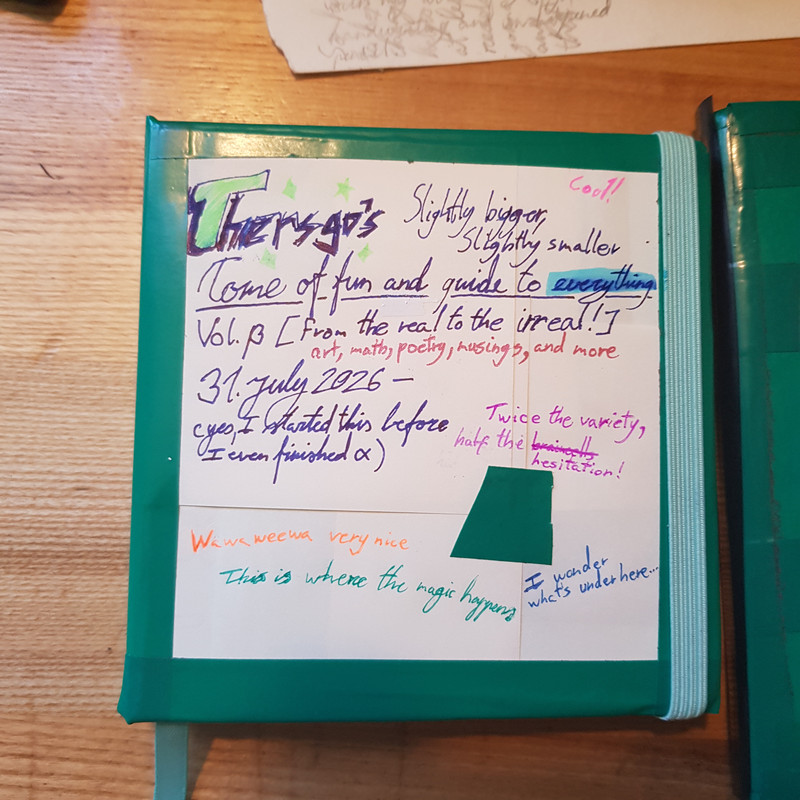 Thersgo's
Slightly bigger,
Slightly smaller
Cool!
Tome of fun and guide to everything
Vol. β [From the real to the irreal!]
art, math, poetry, musings, and more
31. July 2026 –
(yes, I started this before
I even finished α)
Twice the variety,
half the braincells
hesitation!
Wawaweewa very nice
This is where the magic happens
I wonder
what's under here...